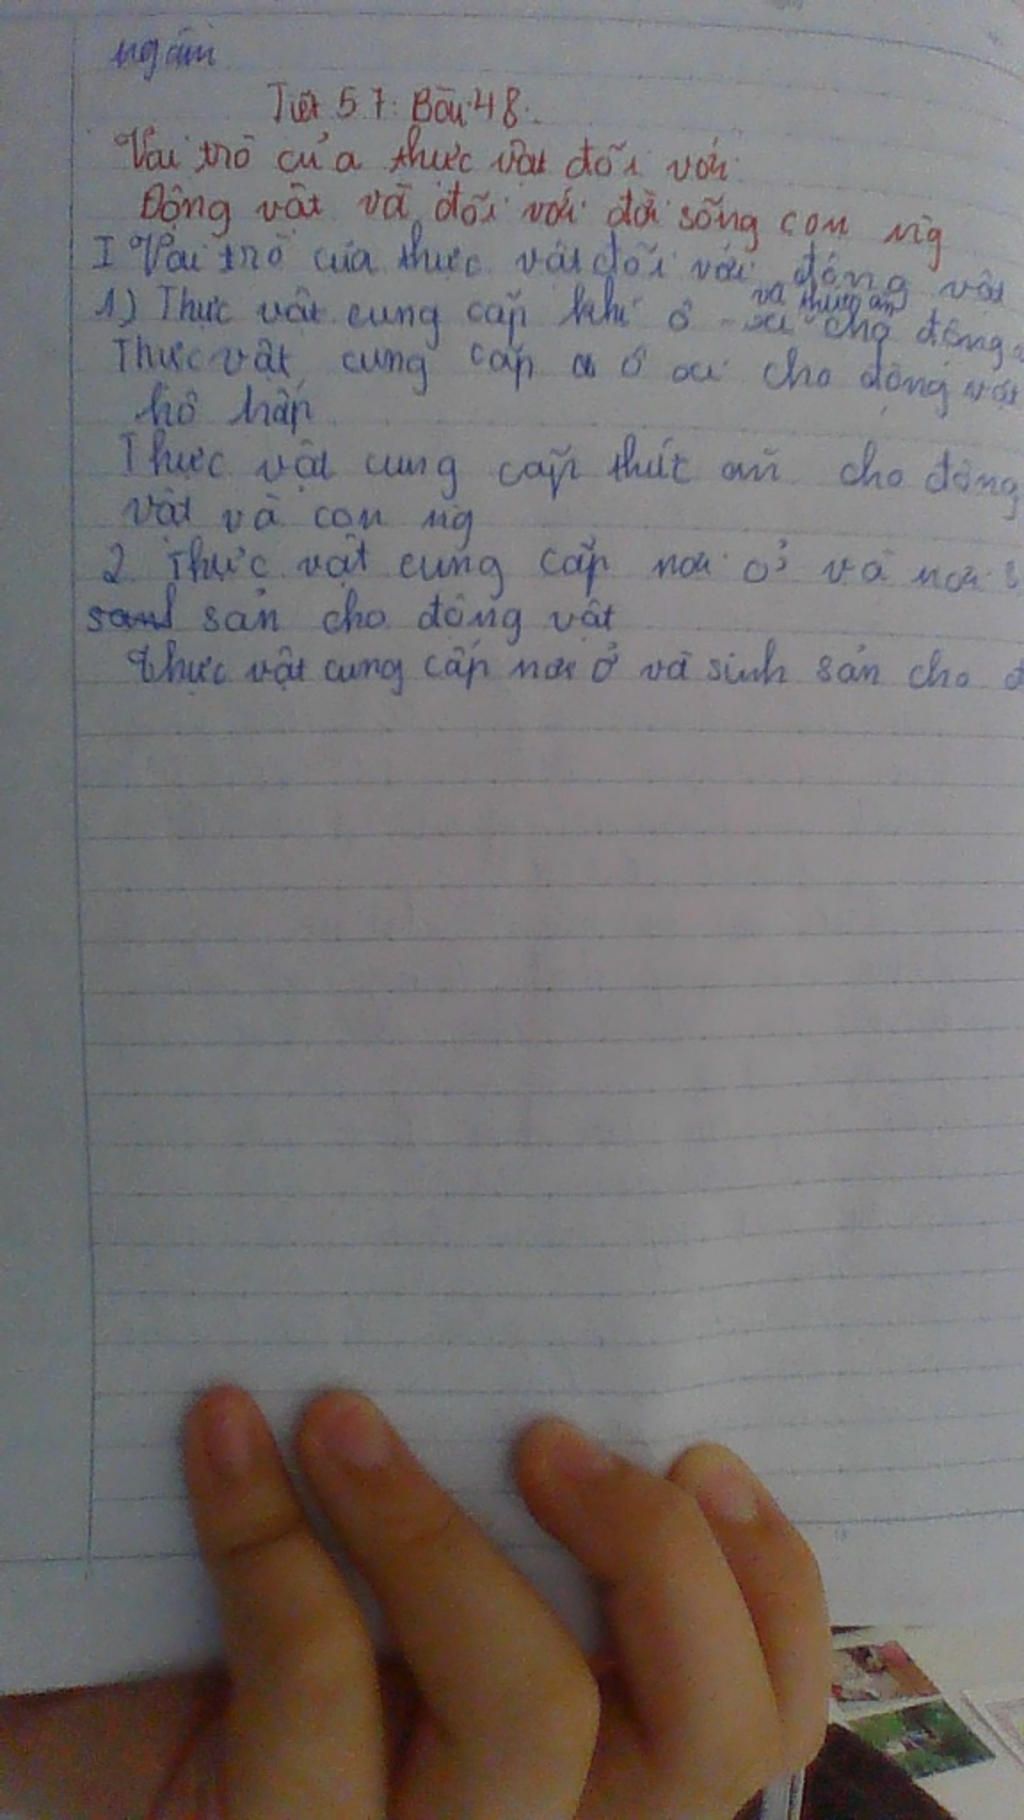 ngầm
Tiết 57: Bài 48.
Vai trò của thực vật đối với
Động vật và đối với đời sống con ng
I Vai trò của thực vật đối với động vật
và thức ăn
1) Thực vật cung cấp khí ô-xi cho động
Thực vật cung cấp ô xi cho động vật
hô hấp
Thực vật cung cấp thức ăn cho động
vật và con ng
2 Thực vật cung cấp nơi ở và nơi s
sản cho động vật
Thực vật cung cấp nơi ở và sinh sản cho đ